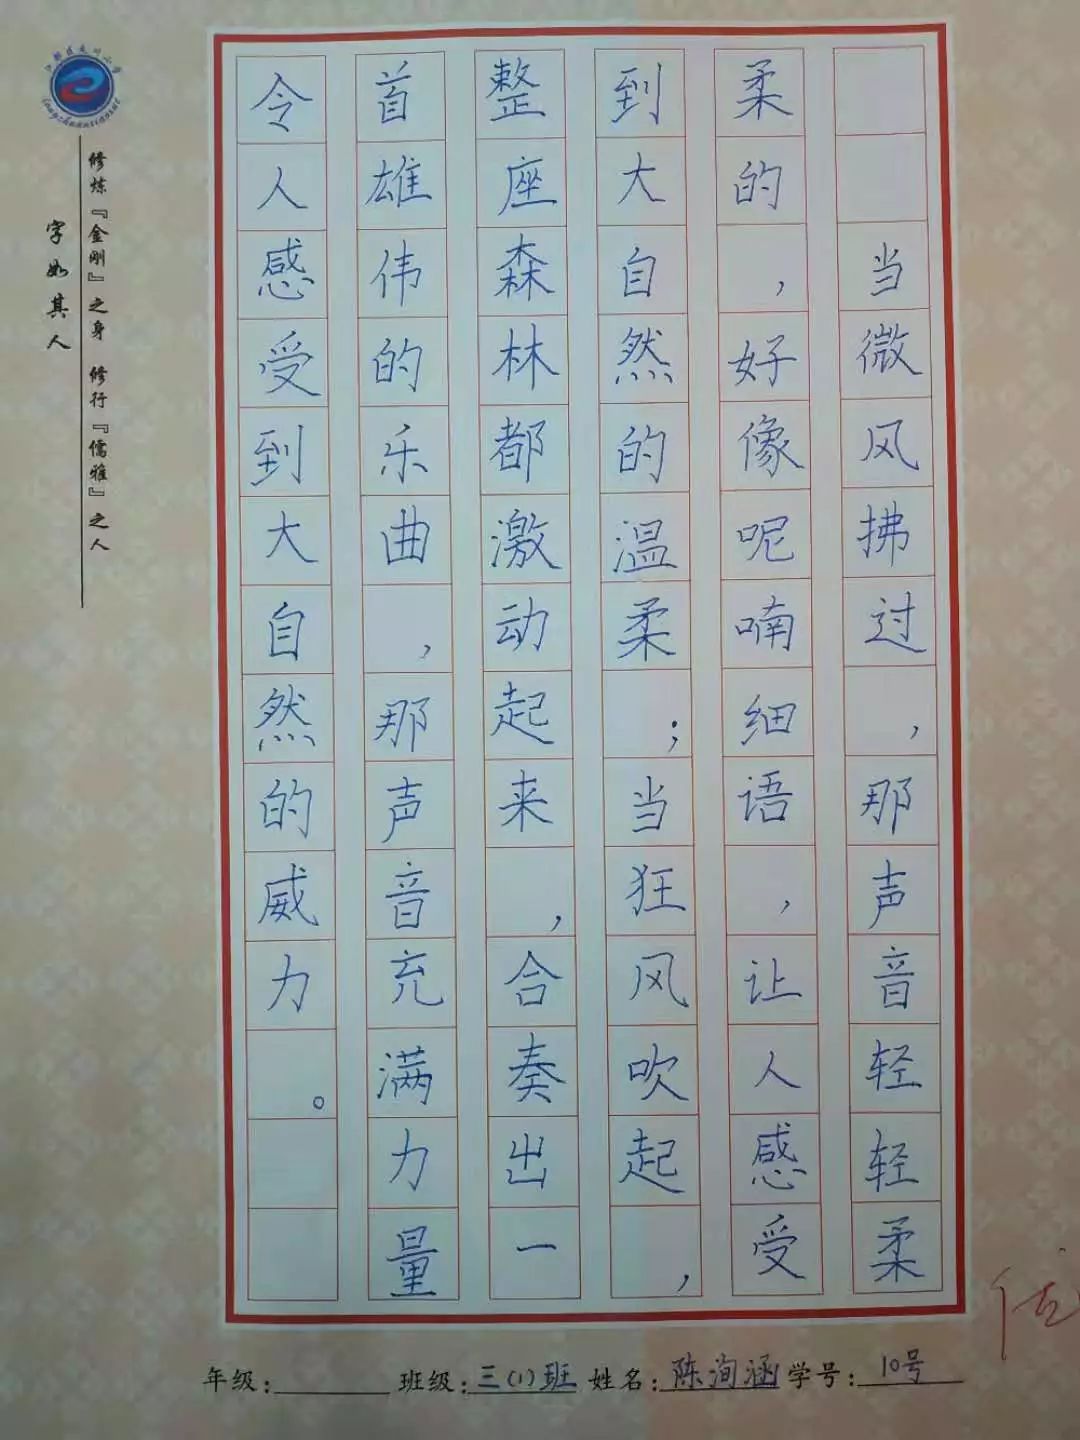 当微风拂过，那声音轻轻柔
柔的，好像呢喃细语，让人感受
到大自然的温柔；当狂风吹起，
整座森林都激动起来，合奏出一
首雄伟的乐曲，那声音充满力量
令人感受到大自然的威力。
修炼『金刚』之身 修行『儒雅』之人
字如其人
年级： 班级：三（1）班 姓名：陈洵涵 学号：10号